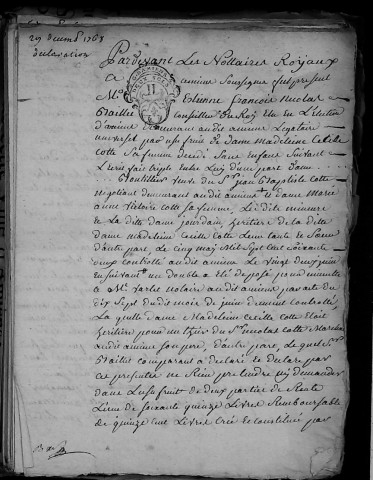 29 Decemb. 1763
Declaration
Pardevant Les Nottaires Royaux
a amiens soussignes fut present
Mr Etienne françois nicolas
consiller Du Roy Elu en L'Election
d'amiens demeurant audit amiens Legataire
universel par usu fruit de Dame Madeleine Cecile
Cotte Sa femme decedé Sans Enfans Suivant
L'ecrit fait triple entre Luy d'une part Dame
veuve du Sr Jean Baptiste Cotte
negotiant demeurant audit amiens et dame Marie
anne Victoire Cotte sa femme, Le dite mineure
de La dite dame jourdain, heritiere de la dite
dame madeleine Cecille Cotte Leur tante et Soeur
D'autre part, Le cinq may Mil Sept cent Soixante
controllé audit amiens Le vingt deux juin
en suivant un double a eté deposé pour minutte
a Me Varlet notaire audit amiens par acte du
dix Sept dudit mois de juin dument controllé
La quelle dame Madeleine Cecille Cotte etoit
heritiere pour un tiers du Sr nicolas Cotte Marchand
audit amiens Son pere, d'autre part, Le quel Sr
comparant a declaré et declare par
ces presentes ne Rien pretendre ny demander
dans L'usufruit de deux parties de Rente
L'une de Soixante quinze Livres Remboursable
de quinze cent Livres Créé et constituée par